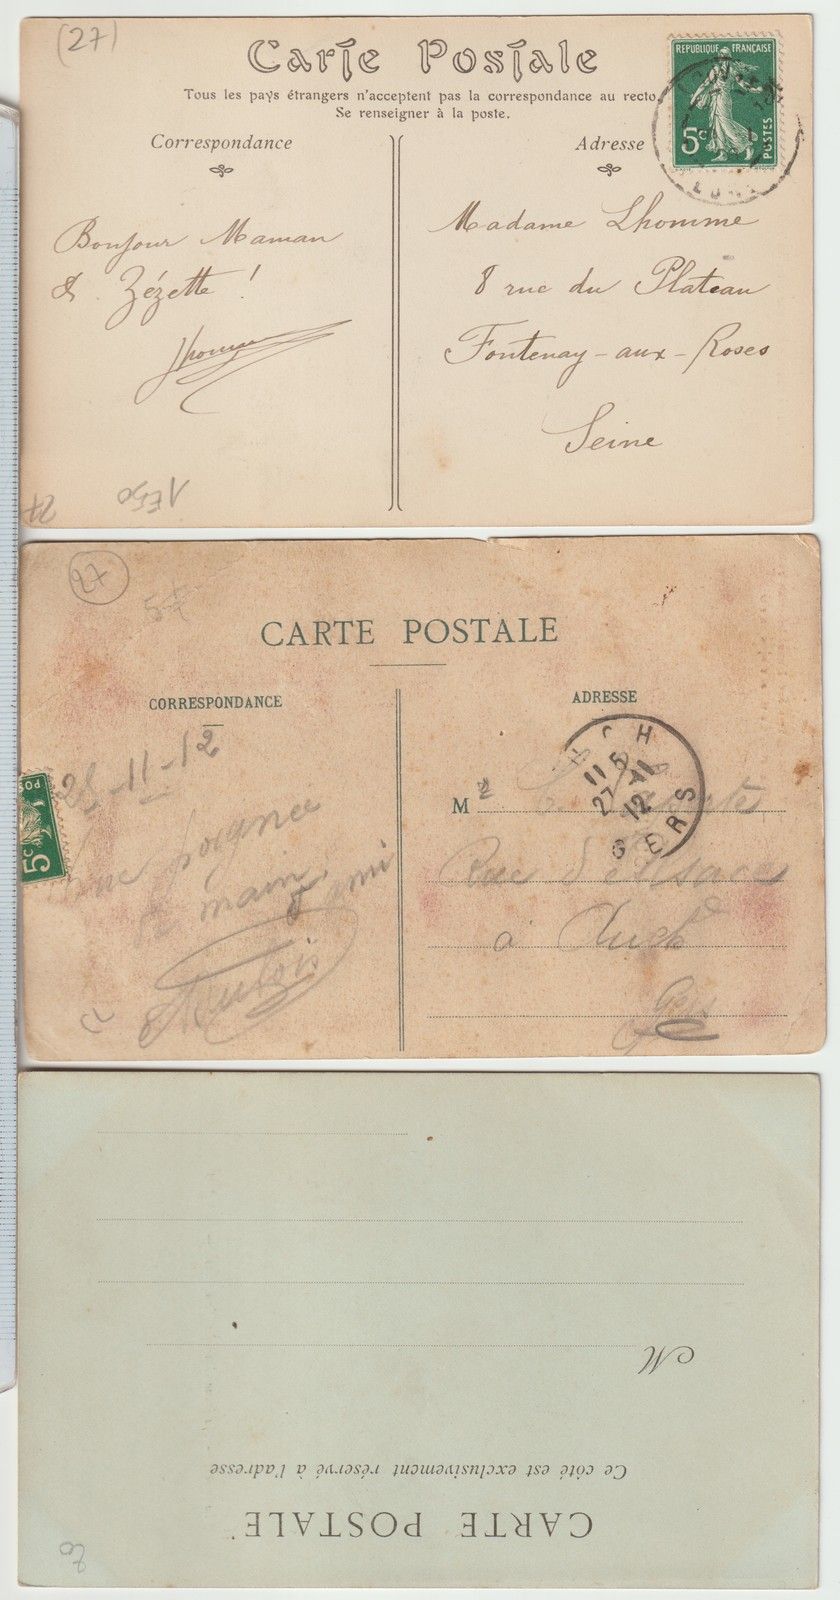 (27)
Carte Postale
Tous les pays étrangers n'acceptent pas la correspondance au recto
Se renseigner à la poste.
REPUBLIQUE FRANÇAISE
5c
POSTES
Correspondance
Adresse
Bonjour Maman
& Zézette !
Lhomme
Madame Lhomme
8 rue du Plateau
Fontenay-aux-Roses
Seine
27
1F50
27
CARTE POSTALE
CORRESPONDANCE
ADRESSE
5c
-11-12
poignée
de main
ami
M
11 5
27-11
12
GERS
Rue d'Alsace
à Auch
Gers
M
Ce côté est exclusivement réservé à l'adresse
CARTE POSTALE